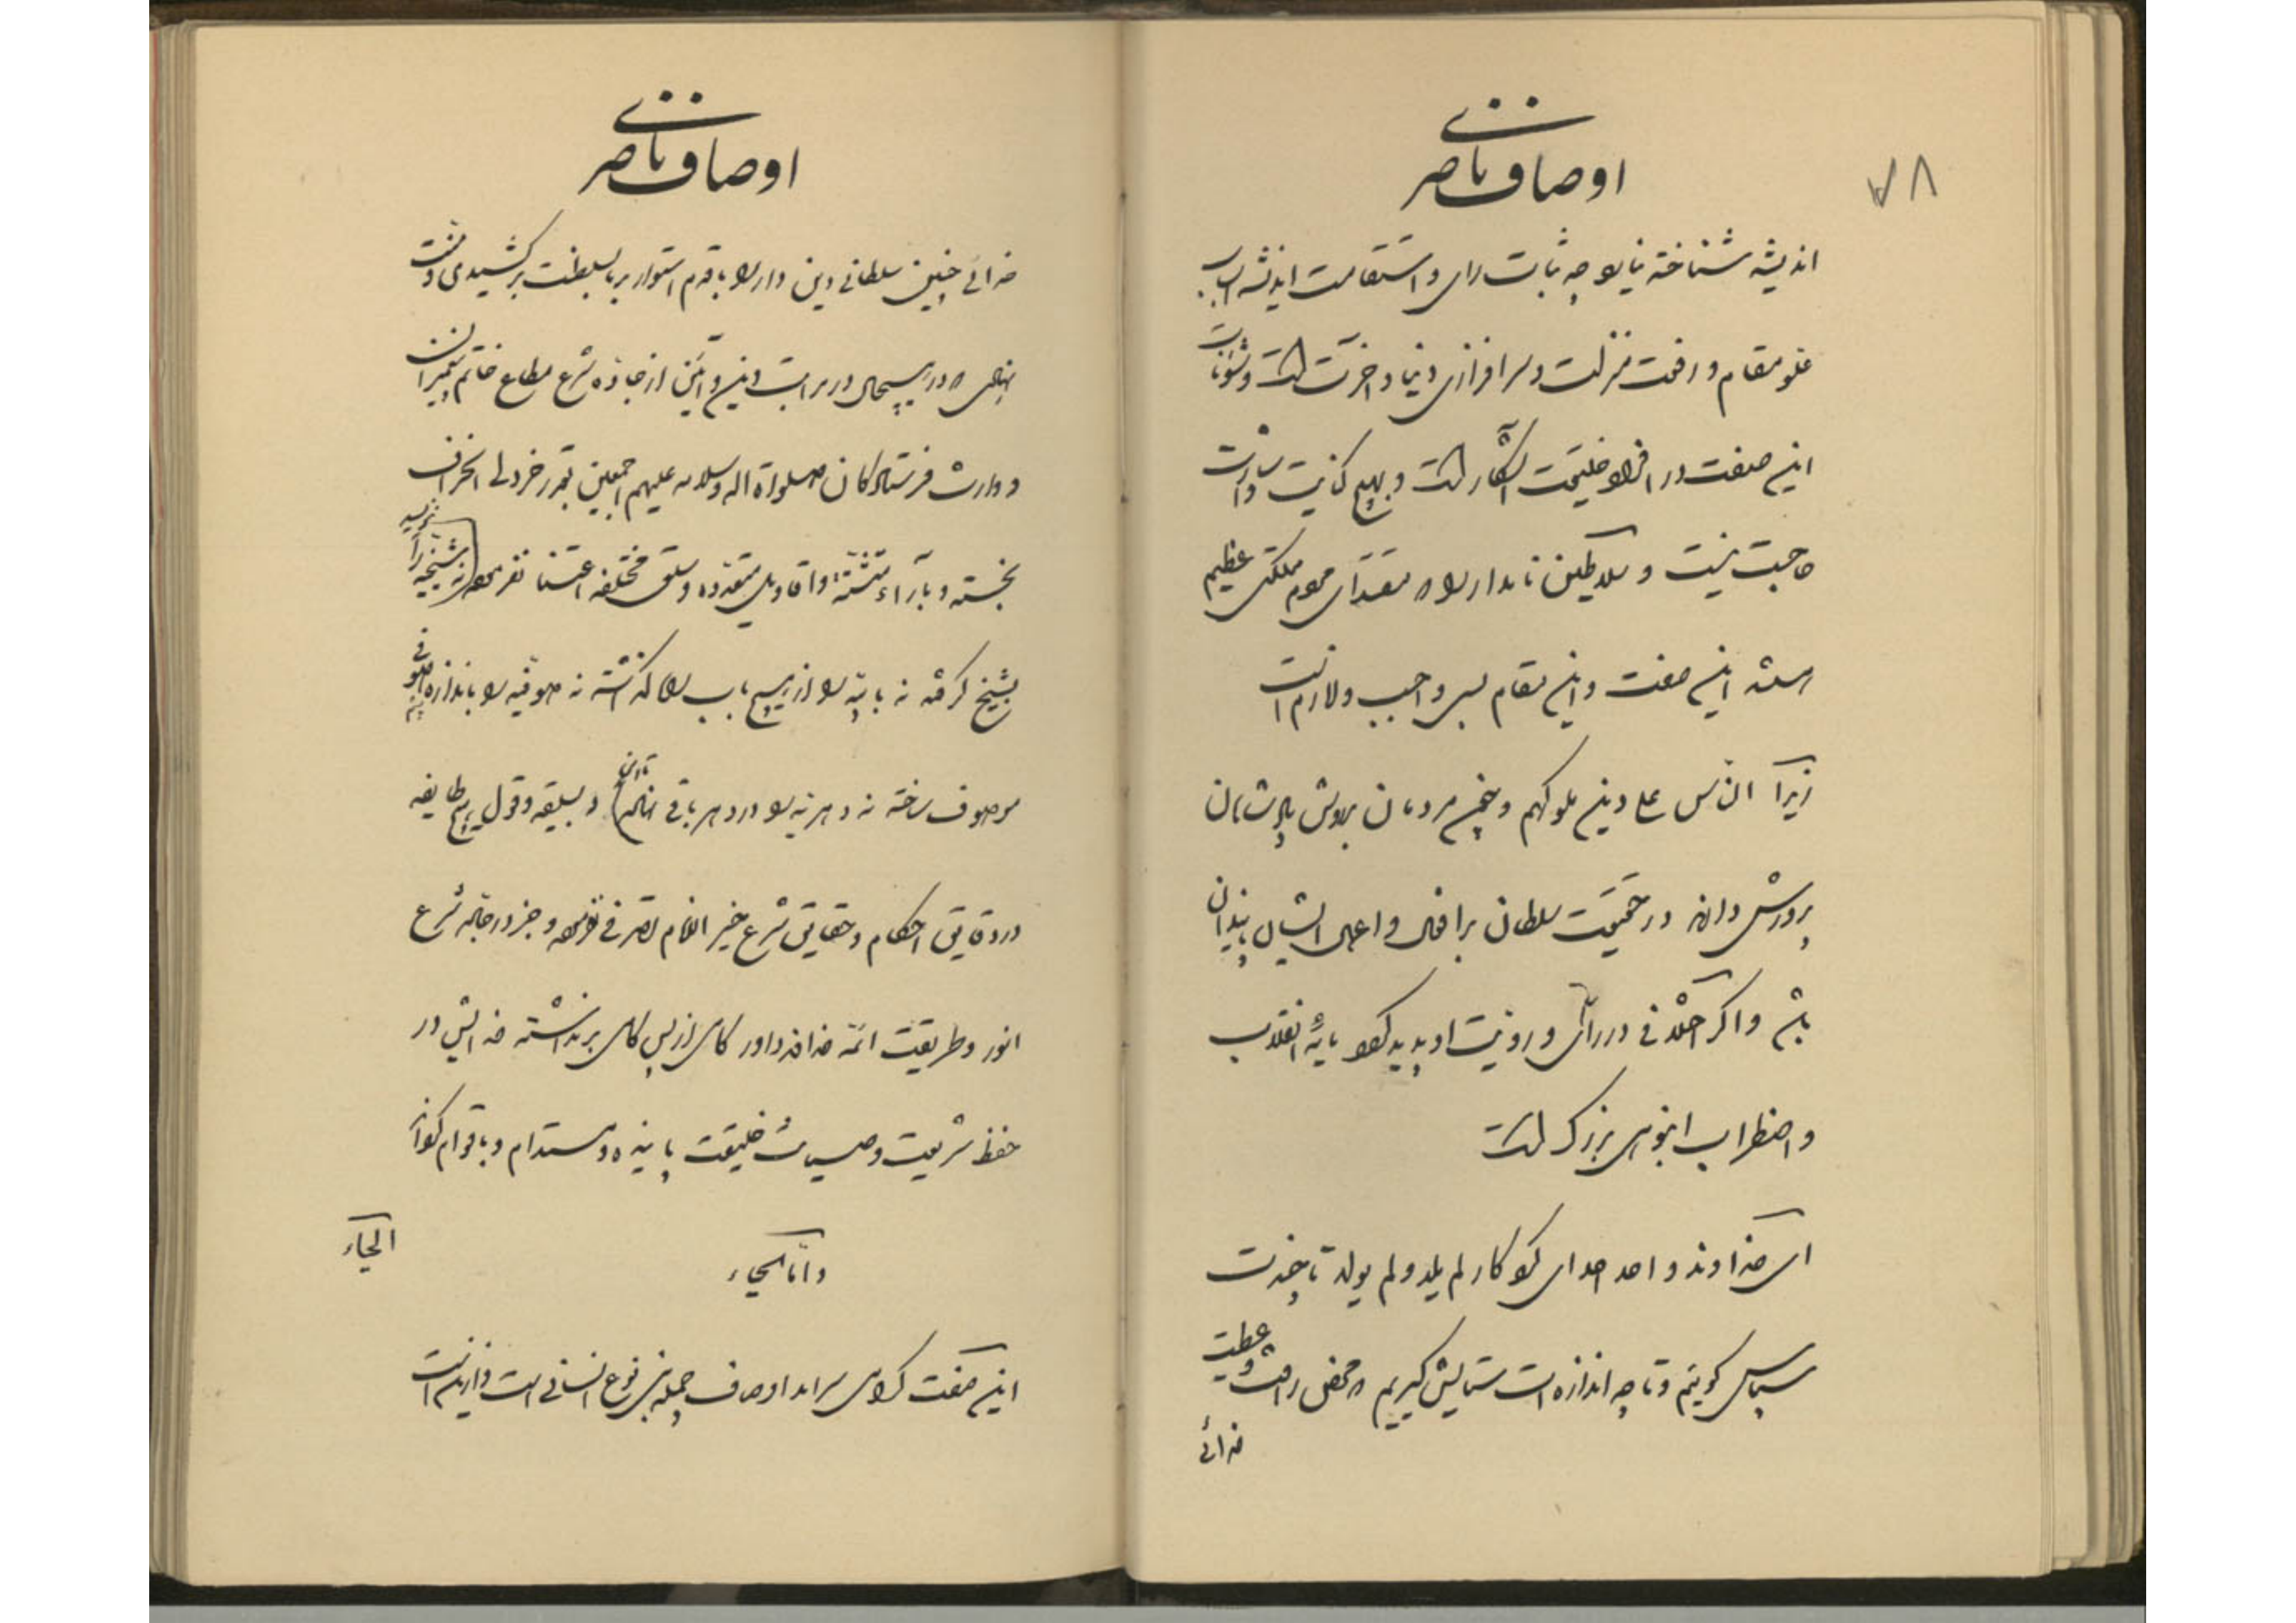 ۷۸
اوصاف ناصری
اندیشه شناخته نیاید چه ثبات رای و استقامت اندیشه اسباب
علو مقام و رفعت منزلت و سرافرازی دنیا و آخرت است و مثوبات
این صفت در افراد خلیقت آشکار است و بهیچ کنایت و اشارت
حاجت نیست و سلاطین نامدار را که مقتدای عموم مملکتی عظیم
این صفت و این مقام بس واجب و لازم است
زیرا الناس علی دین ملوکهم و چون مردمان بروش پادشاهان
پرورش دارند در حقیقت سلطان بر افعال و اعمال ایشان
باشد و اگر اختلافی در رای و رویت او پدید گردد مایه انقلاب
و اضطراب انبوهی بزرگ است
ای خداوند واحد احد ای کردگار لم یلد و لم یولد تا چندت
سپاس گوئیم و تا چه اندازه ات ستایش گیریم که محض رافت و عطیت
خدائی
اوصاف ناصری
خدائی چنین سلطانی دین دار را با قدم استوار بر سلطنت برکشیدی و
که در هیچ حال در مراتب دین و آئین از جاده شرع مطاع خاتم پیغمبران
و وارث فرستادگان صلواة الله و سلامه علیهم اجمعین بقدر خردلی انحراف
نجسته و بآراء متشتته و اقاویل متعدده و سلیق مختلفه اعتنا نفرموده نه شیخیه را
بشیخ گرفته نه بابیه را از هیچ باب گذاشته نه صوفیه را باندازه صوفی
موصوف ساخته نه دهریه را در دهر باقی و بسلیقه و قول هیچ طایفه
در دقایق احکام و حقایق شرع خیر الانام تصرفی نفرموده و جز در جاده شرع
انور و طریقت ائمه گامی از پس گامی برنداشته خدایش در
حفظ شریعت و صیانت خلیقت پاینده و مستدام و با قوام
و اما الحیاء
الحیاء
این صفت گرامی سرآمد اوصاف جمله بنی نوع انسانی است و از این است